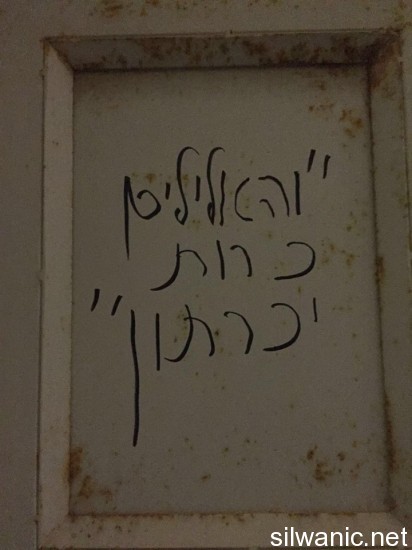 "והאלילים
כרות
יכרתון"
silwanic.net